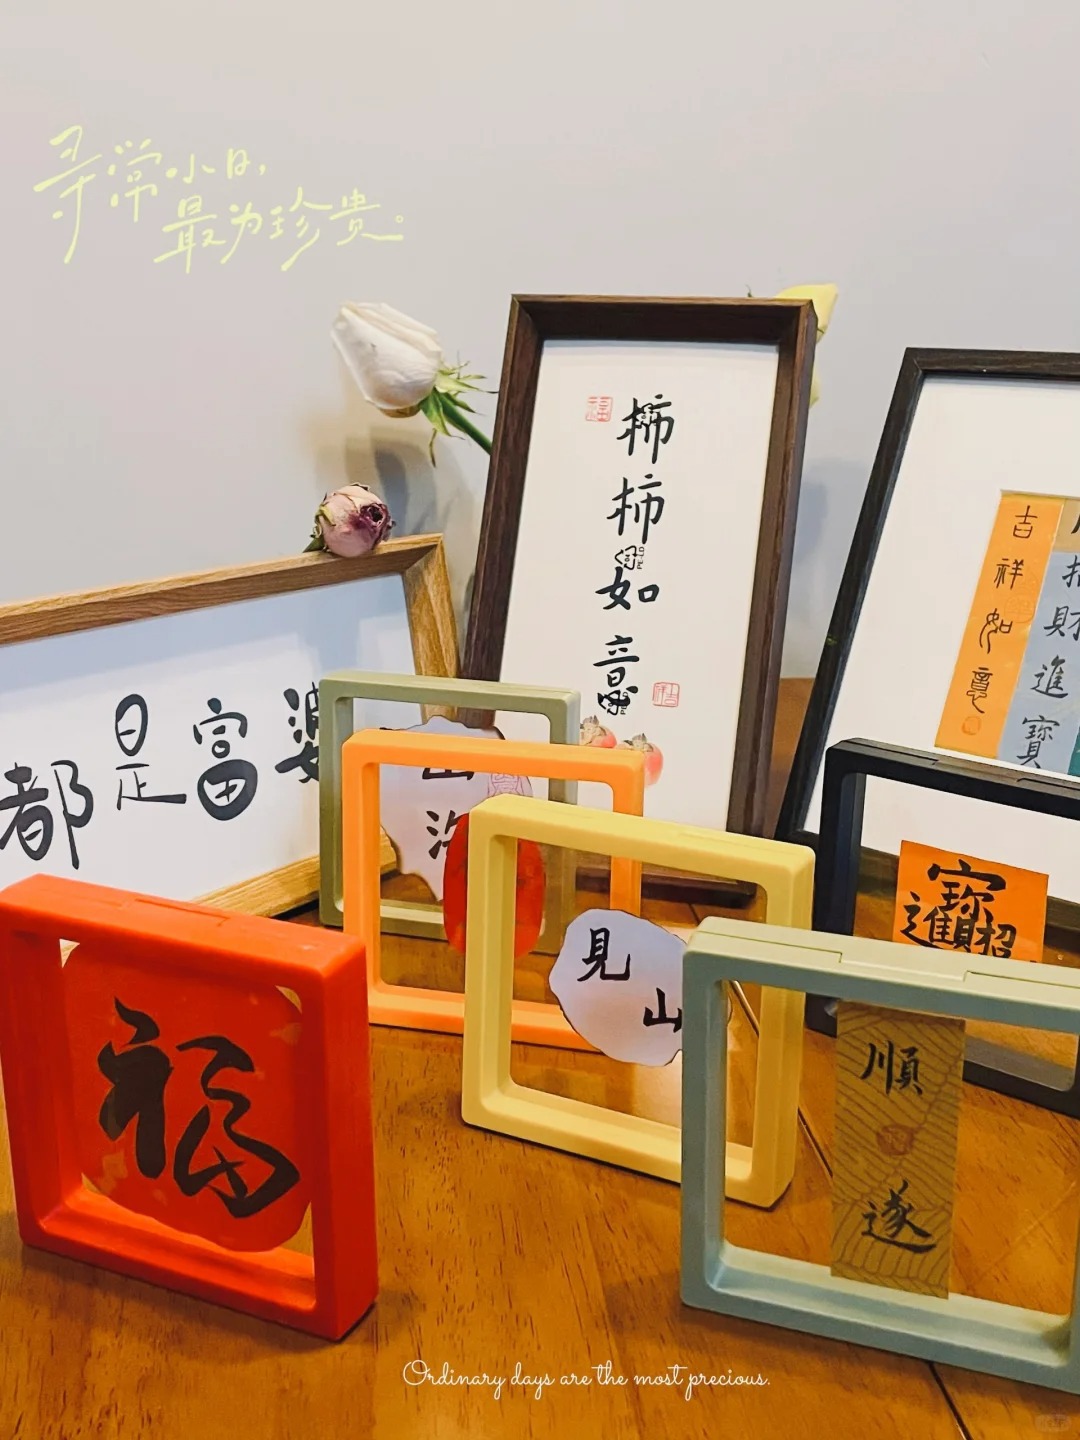 寻常小日，
最为珍贵。
柿柿如意
吉祥如意
招財進寶
都是富婆
山
見山
招財進寶
福
順遂
Ordinary days are the most precious.